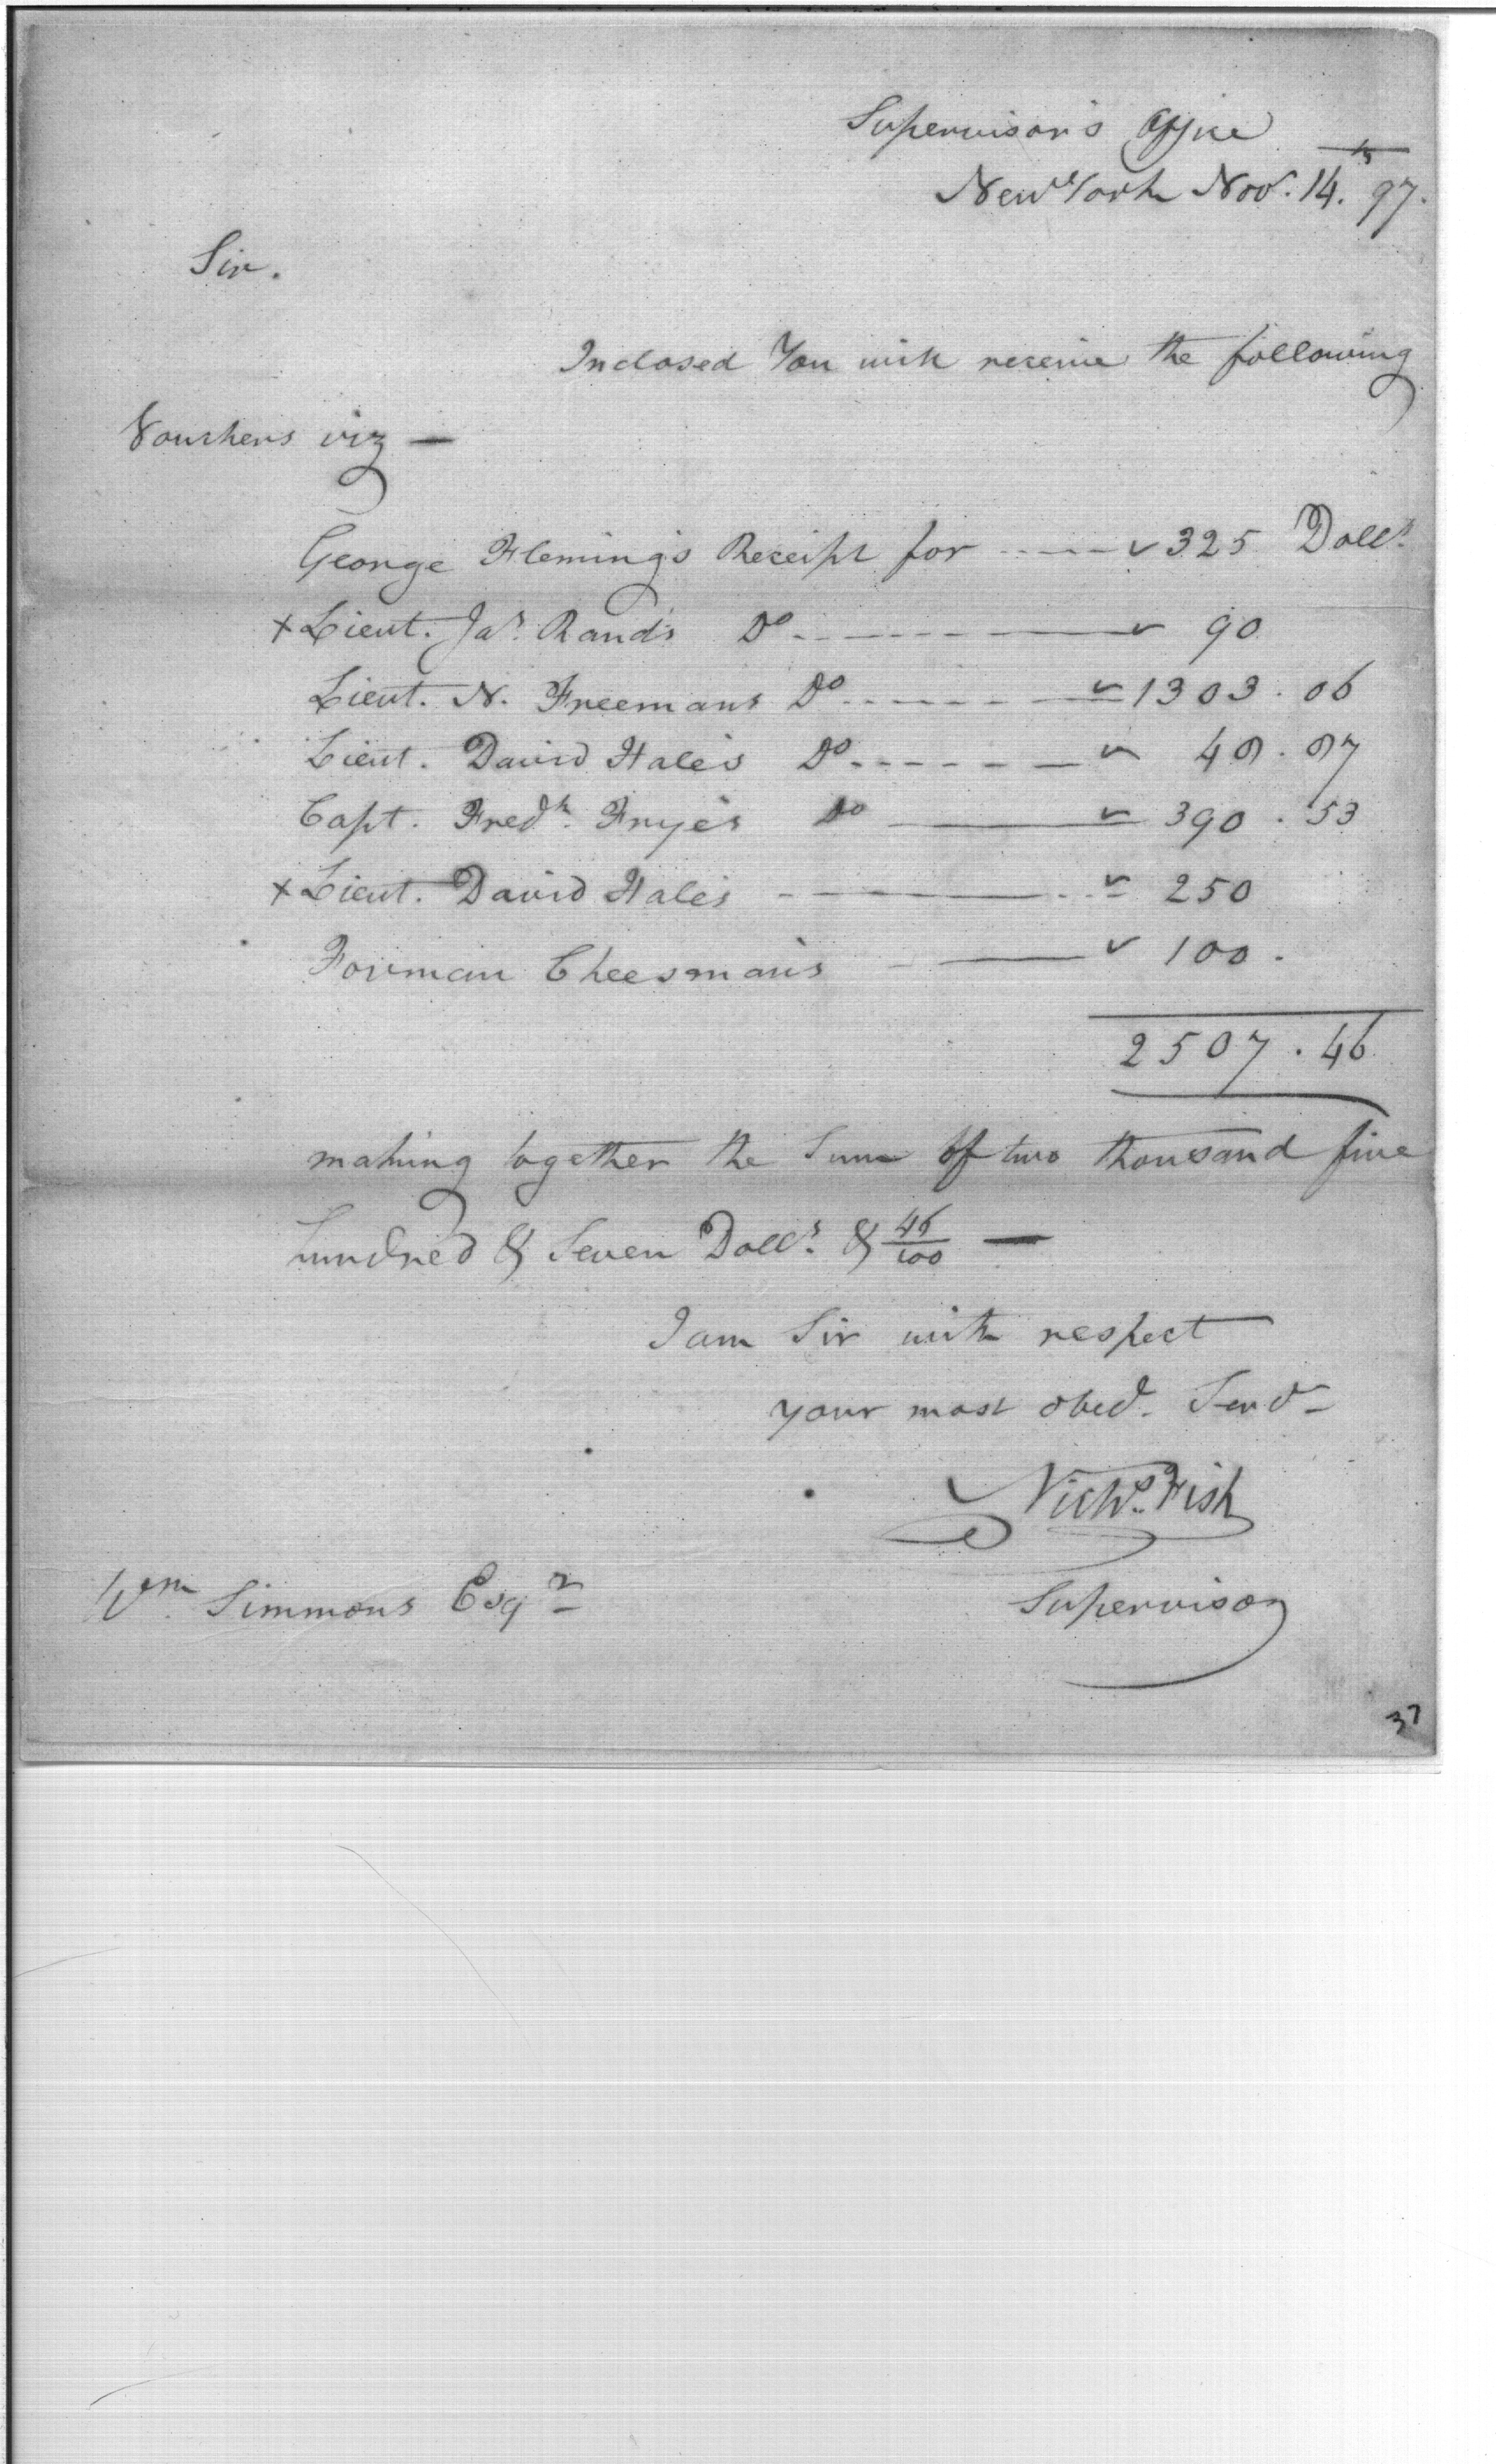 Supervisor's Office
New York Nov.r 14.th 97.
Sir.
Inclosed You will receive the following
Vouchers viz —
George Fleming's Receipt for ----- ✓ 325 Doll.s
x Lieut. Jas. Rand's Do ------ ✓ 90
Lieut. N. Freemans Do ------ ✓ 1303 . 06
Lieut. David Hale's Do ------ ✓ 48 . 87
Capt. Fred.k Frye's Do —— ✓ 390 . 53
x Lieut. David Hale's ------ ✓ 250
Forman Cheesman's —— ✓ 100 .
2507 . 46
making together the Sum of two thousand five
hundred & Seven Doll.s & 46/100 —
I am Sir with respect
your most obed. Servt
Nichs. Fish
Wm. Simmons Esqr
Supervisor
37